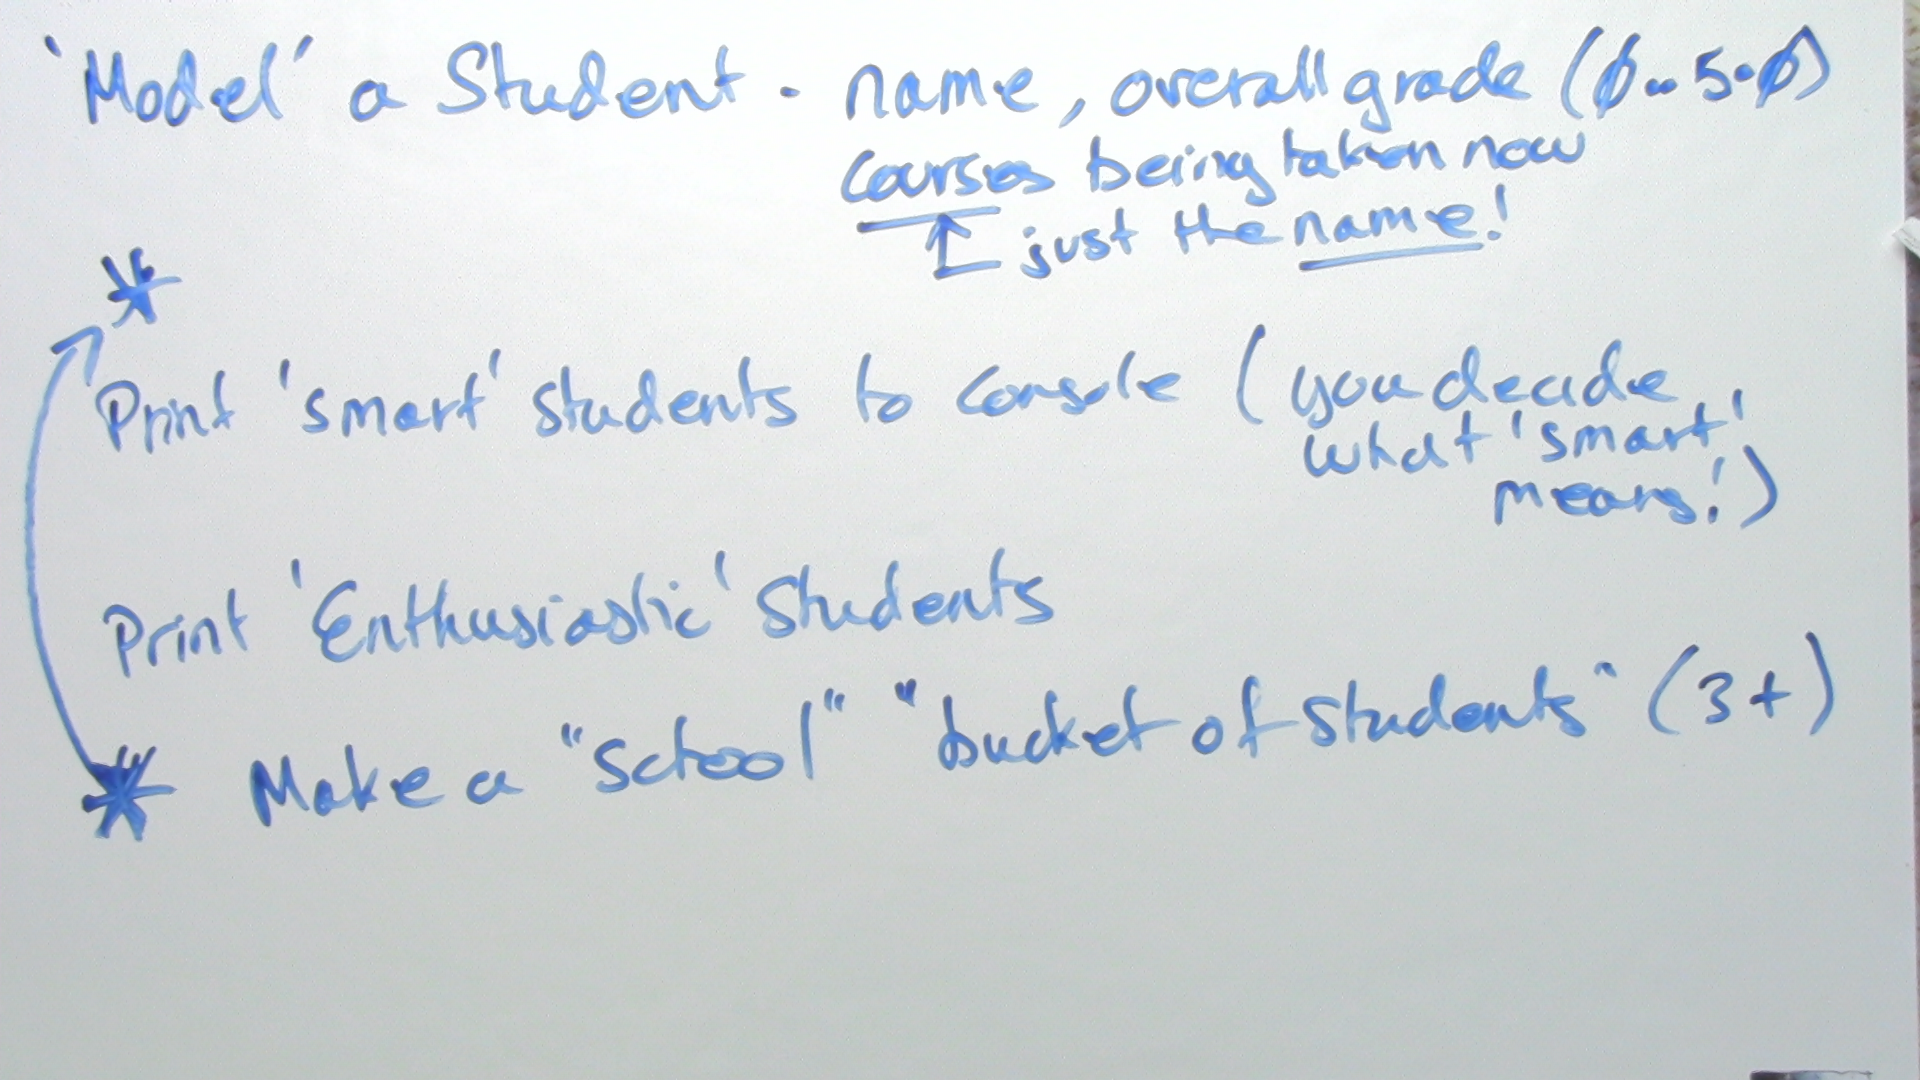 'Model' a Student . name, overall grade (0..5.0)
courses being taken now
just the name!
*
Print 'smart' students to console (you decide
what 'smart'
means!)
Print 'Enthusiastic' Students
* Make a "school" "bucket of students" (3+)